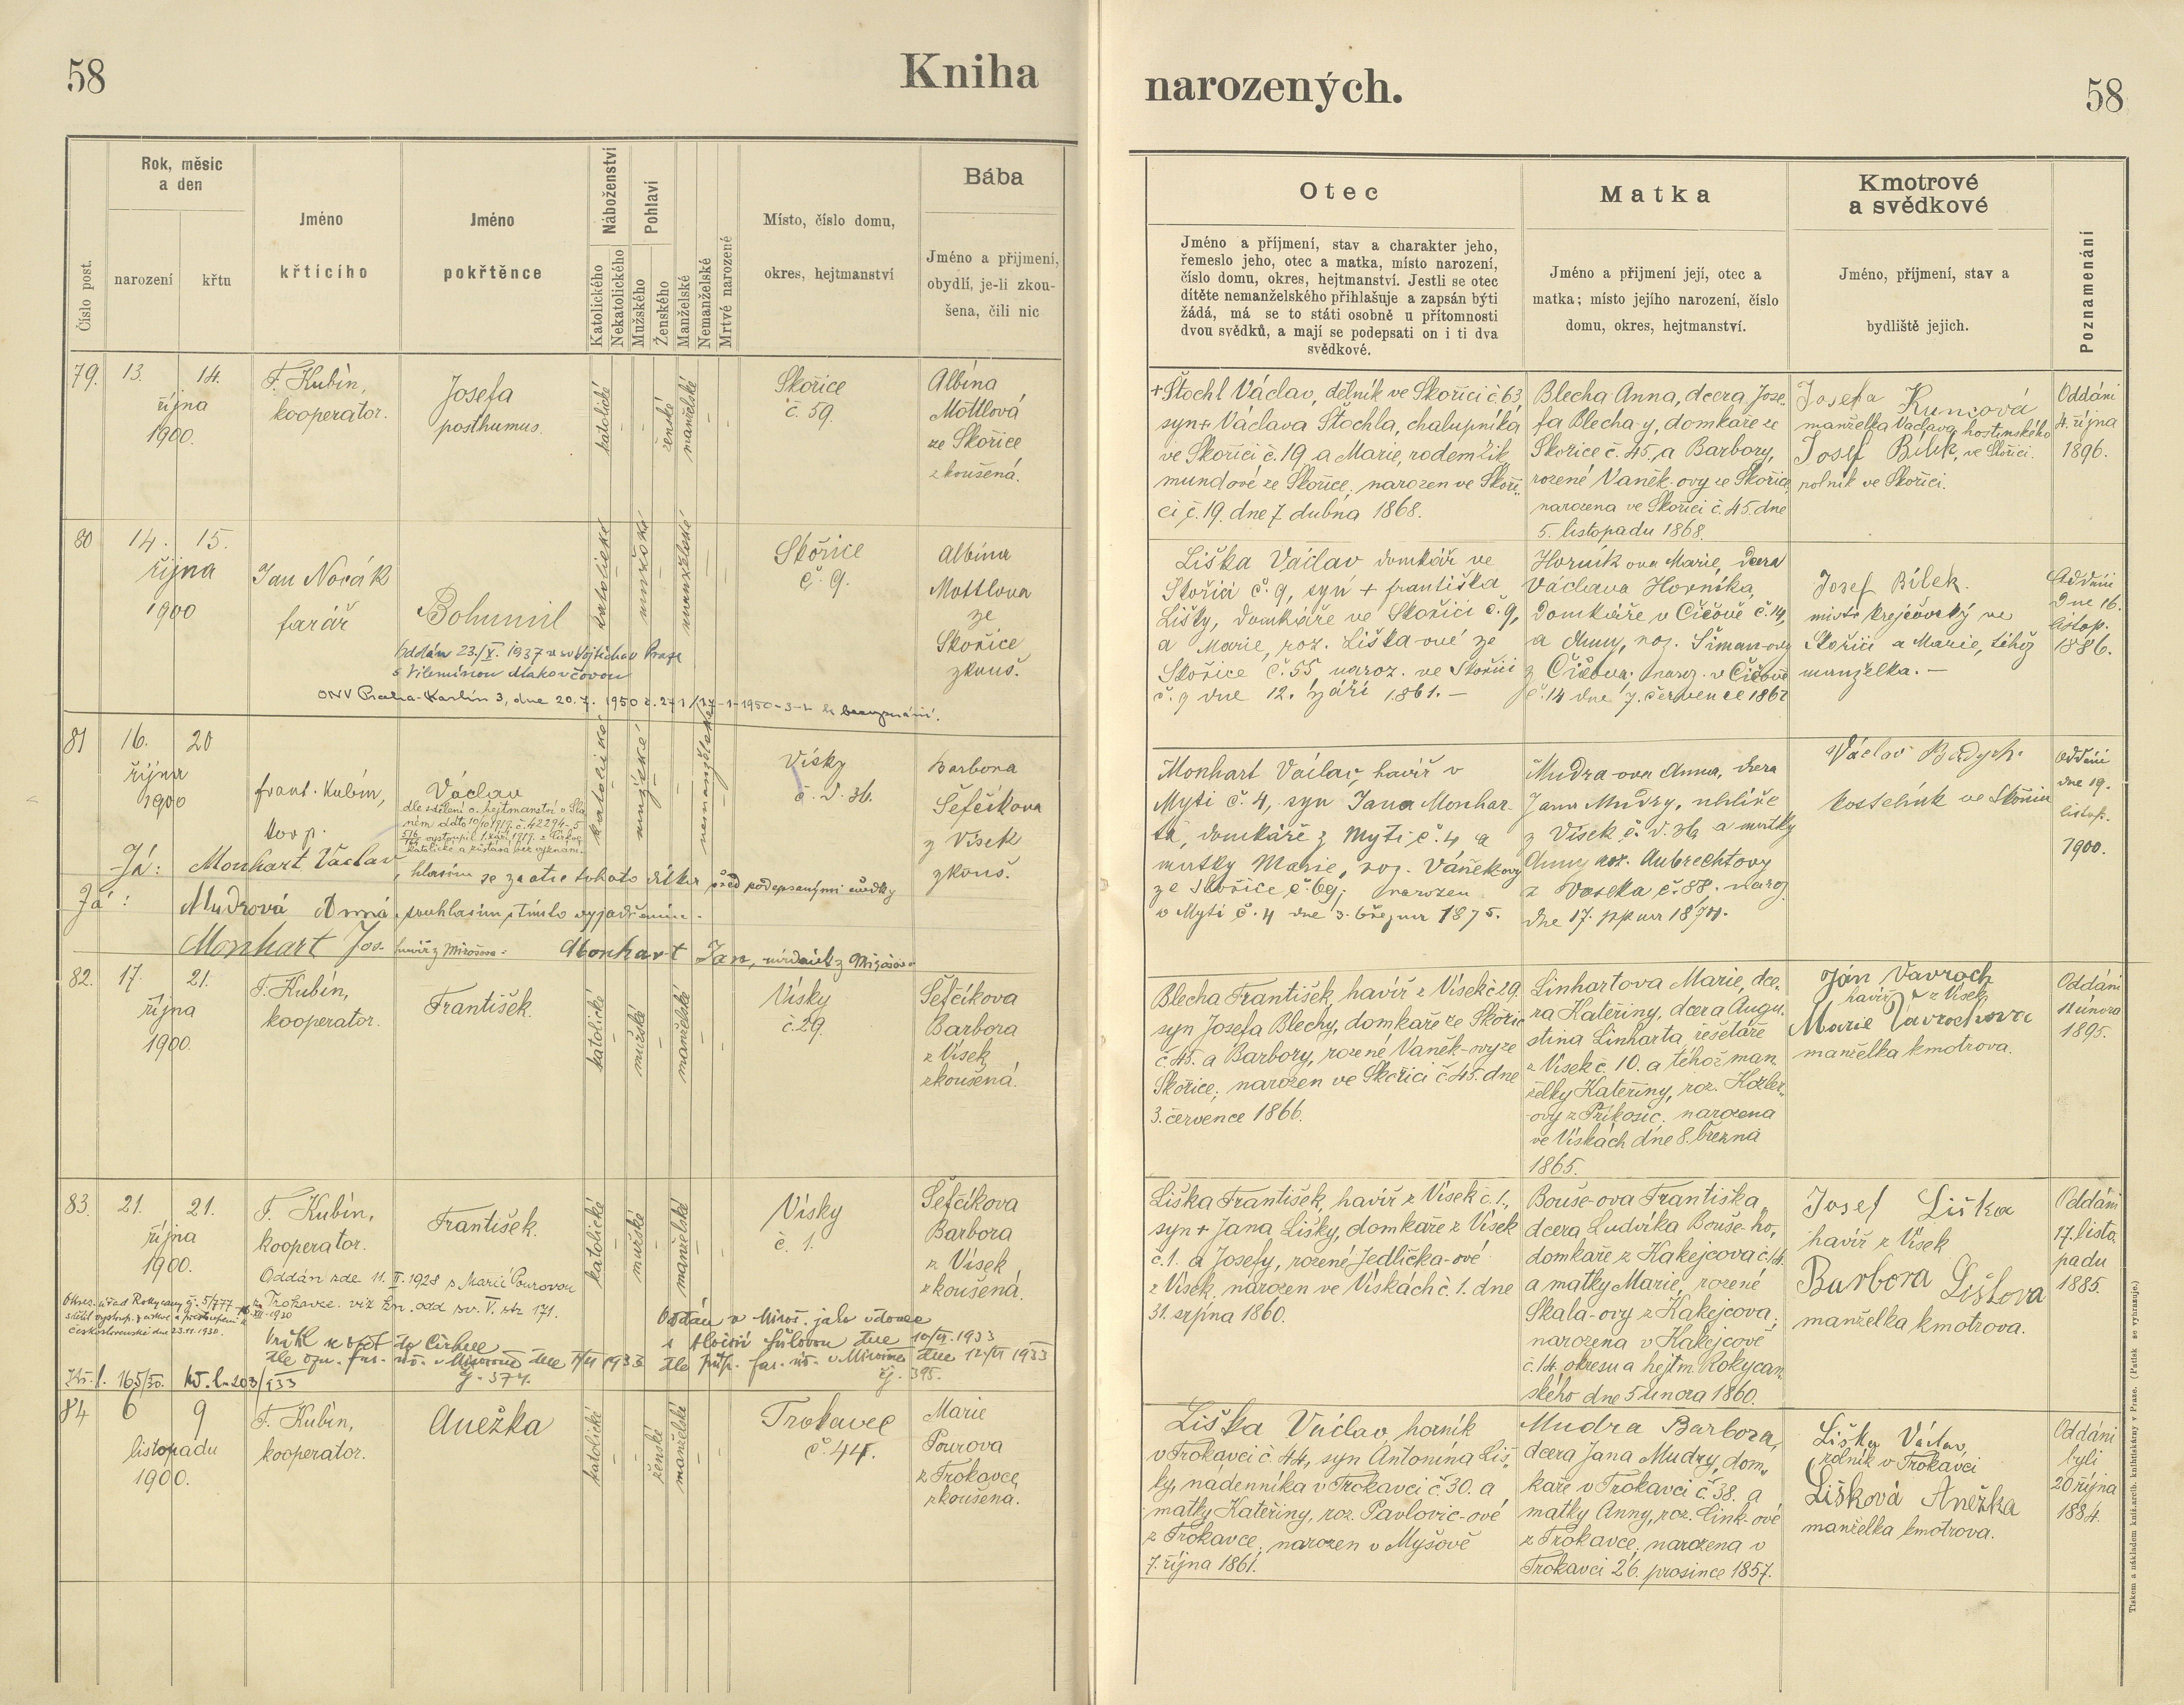 58
Kniha
narozených.
58
Číslo post.
Rok, měsíc
a den
narození
křtu
Jméno
křticího
Jméno
pokřtěnce
Náboženství
Katolického
Nekatolického
Pohlaví
Mužského
Ženského
Manželské
Nemanželské
Mrtvé narozené
Místo, číslo domu,
okres, hejtmanství
Bába
Jméno a přijmení,
obydlí, je-li zkou-
šena, čili nic
Otec
Jméno a příjmení, stav a charakter jeho,
řemeslo jeho, otec a matka, místo narození,
číslo domu, okres, hejtmanství. Jestli se otec
dítěte nemanželského přihlašuje a zapsán býti
žádá, má se to státi osobně u přítomnosti
dvou svědků, a mají se podepsati on i ti dva
svědkové.
Matka
Jméno a příjmení její, otec a
matka; místo jejího narození, číslo
domu, okres, hejtmanství.
Kmotrové
a svědkové
Jméno, příjmení, stav a
bydliště jejich.
Poznamenání
79. 13. 14.
října
1900.
F. Kubín,
kooperator.
Josefa
posthumus.
katolické
ženské
manželské
Skořice
č. 59.
Albína
Mottlová
ze Skořice
zkoušená.
+ Štochl Václav, dělník ve Skořici č. 63
syn + Václava Štochla, chalupníka
ve Skořici č. 19 a Marie, rodem Zik
mundové ze Skořice; narozen ve Skoři-
ci č. 19. dne 7 dubna 1868.
Blecha Anna, dcera Jose-
fa Blecha-y, domkáře ze
Skořice č. 45., a Barbory,
rozené Vaněk-ovy ze Skořice,
narozena ve Skořici č. 45. dne
5. listopadu 1868.
Josefa Kuncová
manželka Václava, hostinského
Josef Bílek, ve Skořici.
rolník ve Skořici.
Oddáni
4. října
1896.
80 14. 15.
října
1900
Jan Novák
farář
Bohumil
Oddán 23./X. 1937 u sv. Vojtěcha v Praze
s Vilemínou
ONV Praha-Karlín 3, dne 20.7. 1950
katolické
mužské
manželské
Skořice
č. 9.
Albína
Mottlova
ze
Skořice
zkouš.
Liška Václav domkář ve
Skořici č. 9, syn + Františka
Lišky, domkáře ve Skořici č. 9,
a Marie, roz. Liška-ové ze
Skořice č. 55, naroz. ve Skořici
č. 9 dne 12. září 1861. –
Horník ova Marie, dcera
Václava Horníka,
domkáře v Čičově č. 14,
a Anny, roz. Šiman-ovy
z Čičova. naroz. v Čičově
č. 14 dne 7. července 1862
Josef Bílek.
mistr krejčovský ve
Skořici a Marie, téhož
manželka. –
Oddáni
dne 16.
listop.
1886.
81 16. 20
října
1900
Frant. Kubín,
koop.
Václav
dle sdělení o. hejtmanství v Sla
ném ddto 10/10 1919 č. 42294-5
katolické a zůstává bez vyznání.
katolické
mužské
nemanželské
Vísky
č. d. 36.
Barbora
Šefčíkova
z Vísek
zkouš.
Já: Monhart Václav, hlasím se za otce tohoto dítka před podepsanými svědky
Já: Mudrová Anna, souhlasím s tímto vyjádřením.
Monhart Jos. havíř z Mirošova: Monhart Jan,
Monhart Václav, havíř v
Mýti č. 4, syn Jana Monhar-
ta, domkáře z Mýti č. 4 a
matky Marie, roz. Váněk-ovy
ze Skořice č. 69; narozen
v Mýti č. 4 dne 3. března 1875.
Mudra-ova Anna, dcera
Jana Mudry, uhlíře
z Vísek č. d. 36 a matky
Anny roz. Aubrechtovy
z Voseka č. 88. naroz.
dne 17. srpna 1874.
Václav
kostelník ve Skořici
Oddáni
dne 19.
listop.
1900.
82. 17. 21.
října
1900.
F. Kubín,
kooperator.
František.
katolické
mužské
manželské
Vísky
č. 29.
Šefčíkova
Barbora
z Vísek
zkoušená.
Blecha František, havíř z Vísek č. 29.
syn Josefa Blechy, domkáře ze Skořic
č. 45. a Barbory, rozené Vaněk-ovy ze
Skořice; narozen ve Skořici č. 45. dne
3. července 1866.
Linhartova Marie, dce-
ra Kateřiny, dcera Augu-
stina Linharta, řešetáře
z Vísek č. 10. a téhož man-
želky Kateřiny, roz. Hozler-
ovy z Příkosic, narozena
ve Vískách dne 8. března
1865.
Ján Vavroch
havíř z Vísek,
Marie Vavrochova
manželka kmotrova.
Oddáni
11 února
1895.
83. 21. 21.
října
1900.
F. Kubín,
kooperator.
František.
Oddán zde 11. II. 1928 s Marií Pourovou
z Trokavce. viz kn. odd. sv. V. str. 171.
Vrátil se opět do Církve
č. j. 374.
Oddán v Miroš. jako vdovec
dne 10/VI. 1933
č. j. 395.
katolické
mužské
manželské
Vísky
č. 1.
Šefčíkova
Barbora
z Vísek
zkoušená.
Liška František, havíř z Vísek č. 1.,
syn + Jana Lišky, domkáře z Vísek
č. 1. a Josefy, rozené Jedlička-ové
z Vísek, narozen ve Vískách č. 1. dne
31. srpna 1860.
Bouše-ova Františka,
dcera Ludvíka Bouše-ho,
domkáře z Kakejcova č. 14.
a matky Marie, rozené
Skala-ovy z Kakejcova;
narozena v Kakejcově
č. 14. okresu a hejtm. Rokycan
ského dne 5 února 1860.
Josef Liška
havíř z Vísek
Barbora Liškova
manželka kmotrova.
Oddáni
17. listo
padu
1885.
84 6 9
listopadu
1900.
F. Kubín,
kooperator.
Anežka
katolické
ženské
manželské
Trokavec
č. 44.
Marie
Pourova
z Trokavce,
zkoušená.
Liška Václav horník
v Trokavci č. 44, syn Antonína Liš-
ky, nádenníka v Trokavci č. 30. a
matky Kateřiny, roz. Pavlovic-ové
z Trokavce; narozen v Myšově
7. října 1861.
Mudra Barbora,
dcera Jana Mudry, dom-
káře v Trokavci č. 38. a
matky Anny, roz. Cink-ové
z Trokavce; narozena v
Trokavci 26. prosince 1857.
Liška Václav,
rolník v Trokavci
Lišková Anežka
manželka kmotrova.
Oddáni
byli
20 října
1884.
Tiskem a nákladem kníž. arcib. knihtiskárny v Praze. (Patisk se vyhrazuje.)